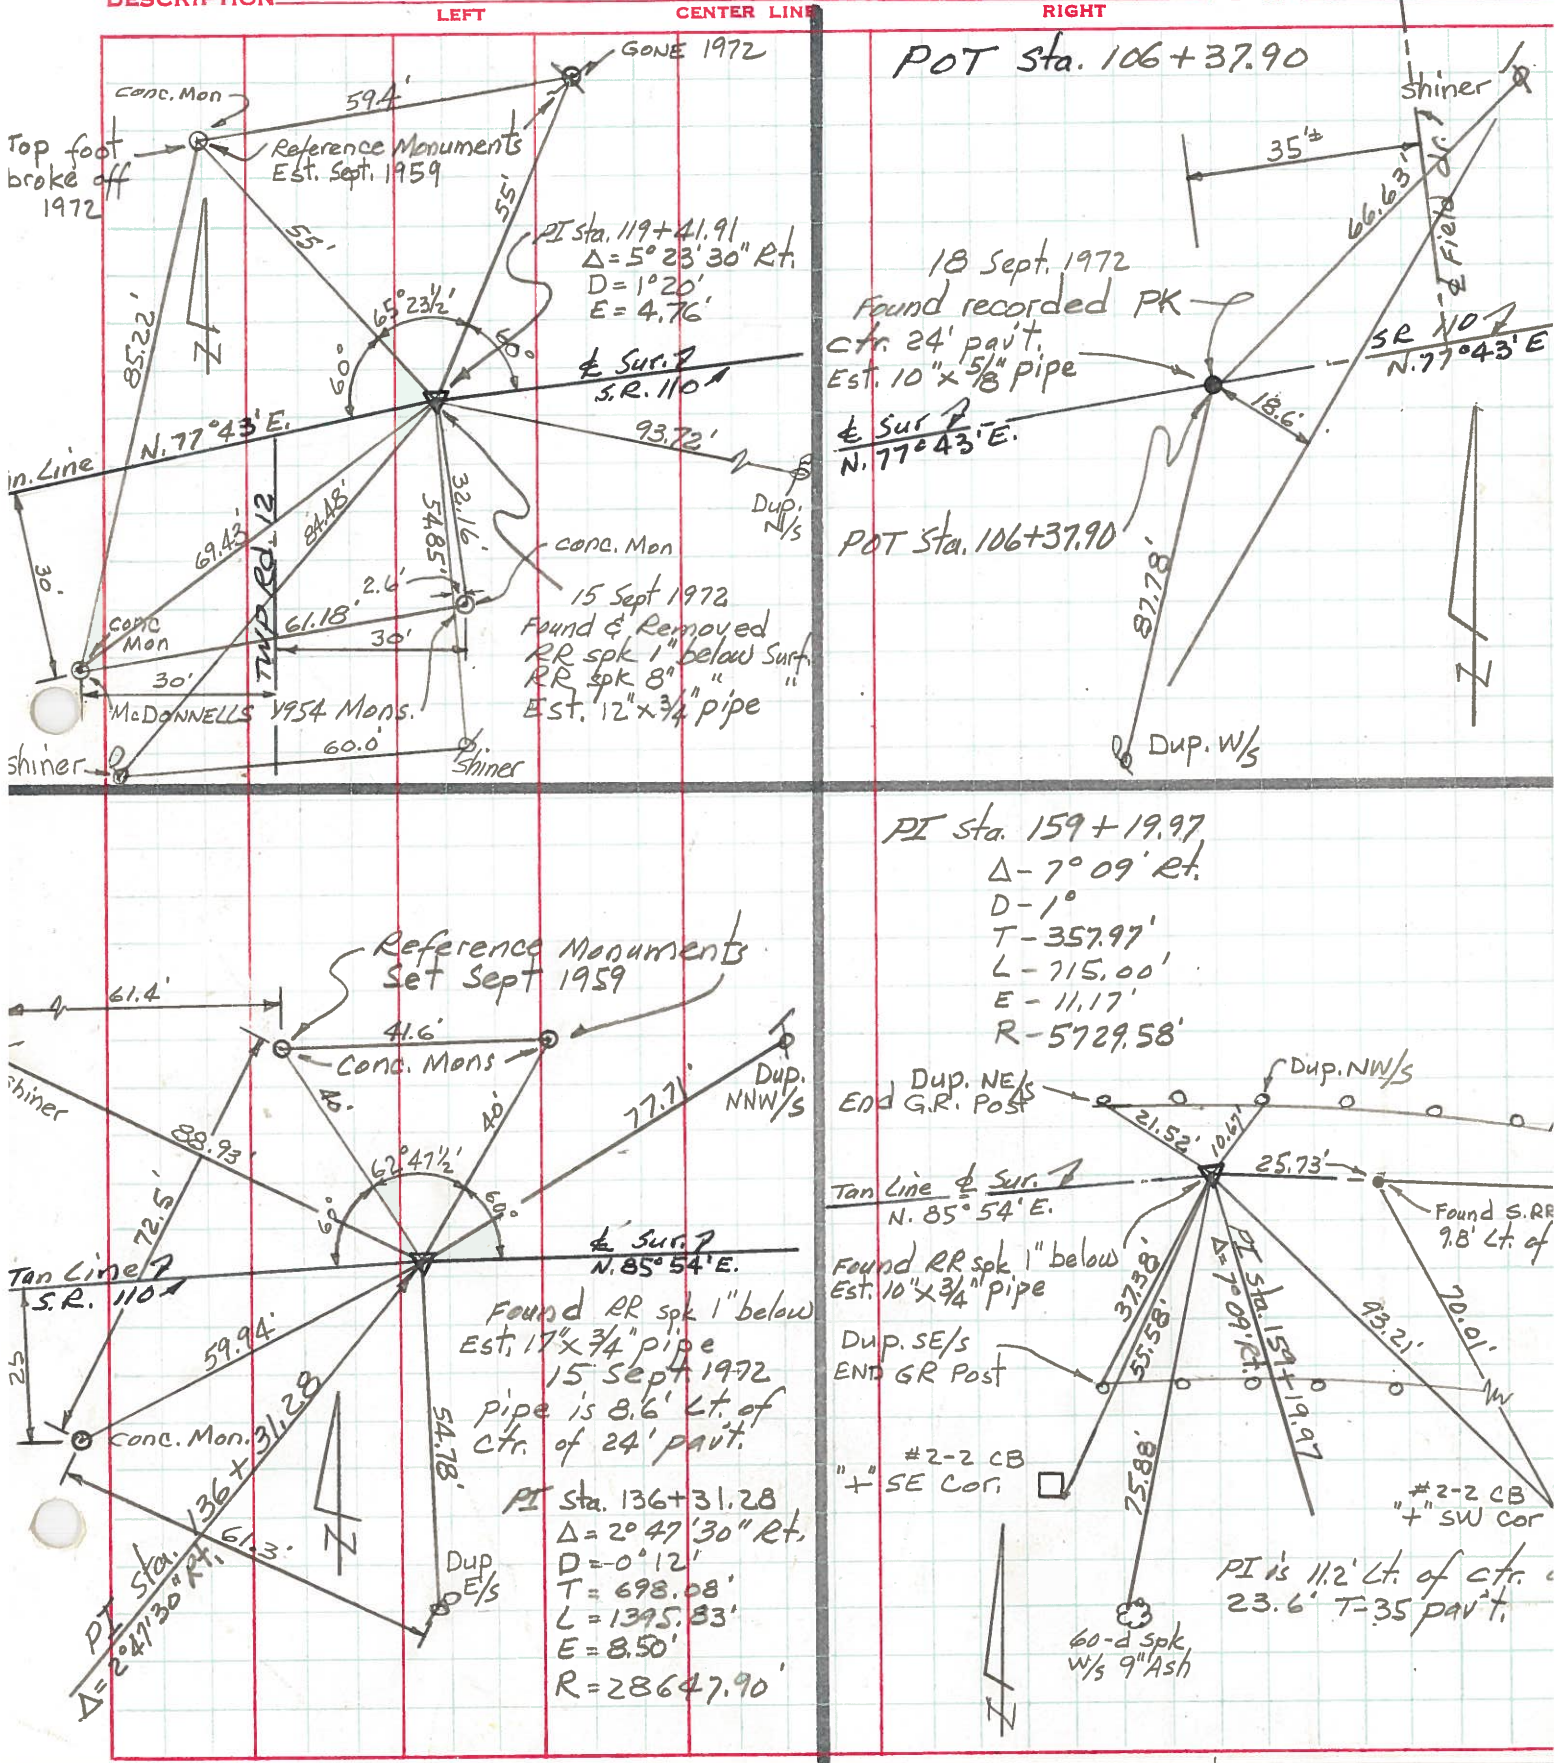 DESCRIPTION
LEFT
CENTER LINE
RIGHT
GONE 1972
Conc. Mon
59.4'
Top foot
broke off
1972
Reference Monuments
Est. Sept. 1959
55'
55'
PI sta. 119+41.91
Δ = 5° 23' 30" Rt.
D = 1° 20'
E = 4.76'
85.22'
N
65° 23½'
60°
60°
℄ Sur.
S.R. 110
N. 77° 43' E.
n. Line
93.72'
Dup.
N/s
69.43'
84.48'
TWP Rd 12
32.16'
54.85'
conc. Mon
30'
conc
Mon
2.6'
61.18'
30'
30'
15 Sept 1972
Found & Removed
RR spk 1" below Surf.
RR spk 8" " "
Est. 12" x 3/4" pipe
McDONNELLS 1954 Mons.
60.0'
shiner
shiner
POT Sta. 106+37.90
shiner
35'±
66.63'
JR Field ℄
18 Sept. 1972
Found recorded PK
ctr. 24' pav't.
Est. 10" x 5/8" pipe
SR 110
N. 77° 43' E
℄ Sur
N. 77° 43' E.
18.6'
POT Sta. 106+37.90
87.78'
N
Dup. W/s
Reference Monuments
Set Sept 1959
61.4'
41.6'
Conc. Mons
shiner
40'
40'
77.71'
Dup.
NNW/s
88.93'
72.5'
62° 47½'
60°
60°
Tan Line
S.R. 110
℄ Sur.
N. 85° 54' E.
25'
59.94'
Found RR spk 1" below
Est. 17" x 3/4" pipe
15 Sept 1972
pipe is 8.6' Lt. of
ctr. of 24' pav't.
Conc. Mon.
54.78'
PI Sta. 136+31.28
Δ = 2° 47' 30" Rt.
N
61.3'
Dup
E/s
PI Sta. 136+31.28
Δ = 2° 47' 30" Rt.
D = 0° 12'
T = 698.08'
L = 1395.83'
E = 8.50'
R = 28647.90'
PI Sta. 159+19.97
Δ - 7° 09' Rt.
D - 1°
T - 357.97'
L - 715.00'
E - 11.17'
R - 5729.58'
Dup. NE/s
End G.R. Post
Dup. NW/s
21.52'
10.67'
25.73'
Tan Line ℄ Sur.
N. 85° 54' E.
Found S.RR
9.8' Lt. of
Found RR spk 1" below
Est. 10" x 3/4" pipe
37.38'
55.58'
PI Sta. 159+19.97
Δ = 7° 09' Rt.
93.21'
70.01'
Dup. SE/s
END GR Post
#2-2 CB
"+" SE Cor.
75.88'
#2-2 CB
"+" SW Cor
PI is 11.2' Lt. of ctr.
23.6' T-35 pav't.
N
60-d spk
W/s 9" Ash